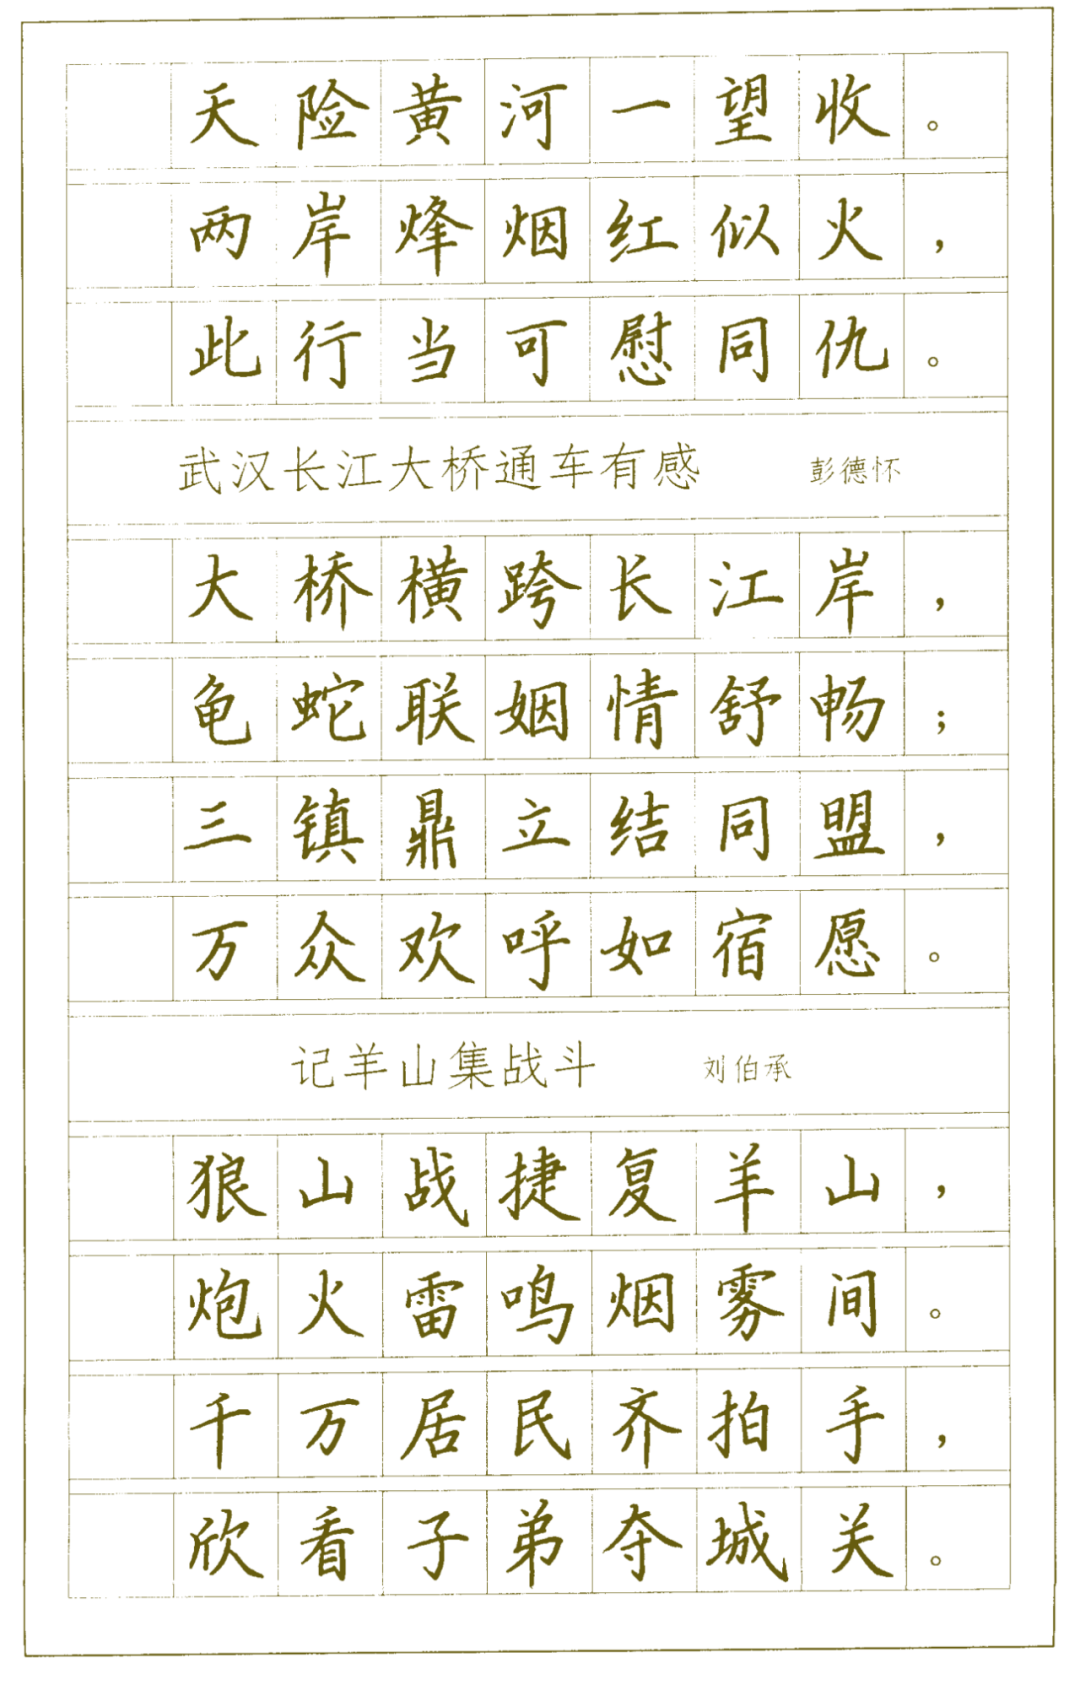 天险黄河一望收。
两岸烽烟红似火，
此行当可慰同仇。
武汉长江大桥通车有感 彭德怀
大桥横跨长江岸，
龟蛇联姻情舒畅；
三镇鼎立结同盟，
万众欢呼如宿愿。
记羊山集战斗 刘伯承
狼山战捷复羊山，
炮火雷鸣烟雾间。
千万居民齐拍手，
欣看子弟夺城关。